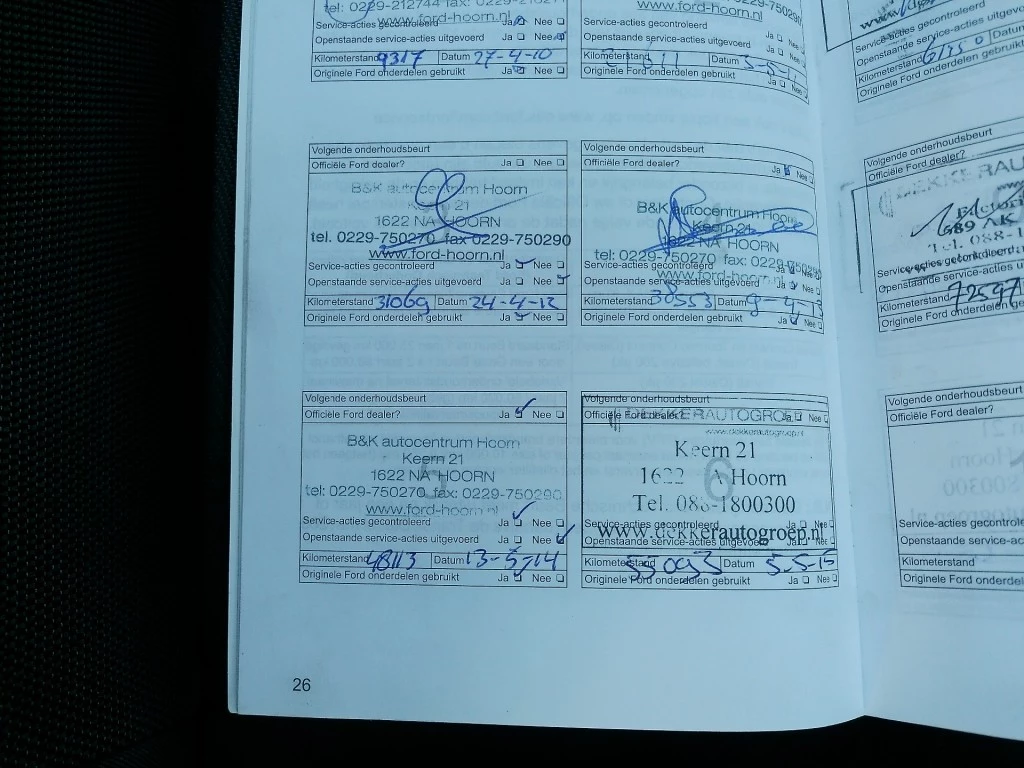 tel: 0229-212744 fax:
www.ford-hoorn.nl
Service-acties gecontroleerd Ja Nee
Openstaande service-acties uitgevoerd Ja Nee
Kilometerstand 9317 Datum 27-4-10
Originele Ford onderdelen gebruikt Ja Nee
0229-750290
www.ford-hoorn.nl
Service-acties gecontroleerd Ja Nee
Openstaande service-acties uitgevoerd Ja Nee
Kilometerstand Datum
Originele Ford onderdelen gebruikt Ja Nee
Service-acties gecontroleerd
Openstaande service-acties uitgevoerd
Kilometerstand 61750
Originele Ford onderdelen gebruikt
Volgende onderhoudsbeurt
Officiële Ford dealer? Ja Nee
B&K autocentrum Hoorn
Keern 21
1622 NA HOORN
tel. 0229-750270 fax 0229-750290
www.ford-hoorn.nl
Service-acties gecontroleerd Ja Nee
Openstaande service-acties uitgevoerd Ja Nee
Kilometerstand 31069 Datum 24-4-12
Originele Ford onderdelen gebruikt Ja Nee
Volgende onderhoudsbeurt
Officiële Ford dealer? Ja Nee
B&K autocentrum Hoorn
Keern 21
1622 NA HOORN
tel: 0229-750270 fax: 0229-750290
www.ford-hoorn.nl
Service-acties gecontroleerd Ja Nee
Openstaande service-acties uitgevoerd Ja Nee
Kilometerstand 38553 Datum 9-4-13
Originele Ford onderdelen gebruikt Ja Nee
Volgende onderhoudsbeurt
Officiële Ford dealer?
DEKKERA
1689 AK
Tel. 088-1
Service-acties gecontroleerd
Openstaande service-acties
Kilometerstand 72597
Originele Ford onderdelen
Volgende onderhoudsbeurt
Officiële Ford dealer? Ja Nee
B&K autocentrum Hoorn
Keern 21
1622 NA HOORN
tel: 0229-750270 fax: 0229-750290
www.ford-hoorn.nl
5
Service-acties gecontroleerd Ja Nee
Openstaande service-acties uitgevoerd Ja Nee
Kilometerstand 48113 Datum 13-5-14
Originele Ford onderdelen gebruikt Ja Nee
Volgende onderhoudsbeurt
Officiële Ford dealer? Ja Nee
DEKKERAUTOGROEP
www.dekkerautogroep.nl
Keern 21
1622 A Hoorn
Tel. 088-1800300
6
Service-acties gecontroleerd Ja Nee
www.dekkerautogroep.nl
Openstaande service-acties uitgevoerd Ja Nee
Kilometerstand 55093 Datum 5-5-15
Originele Ford onderdelen gebruikt Ja Nee
Volgende onderhoudsbeurt
Officiële Ford dealer?
Service-acties gecontrole
Openstaande service-ac
Kilometerstand
Originele Ford onderdel
26